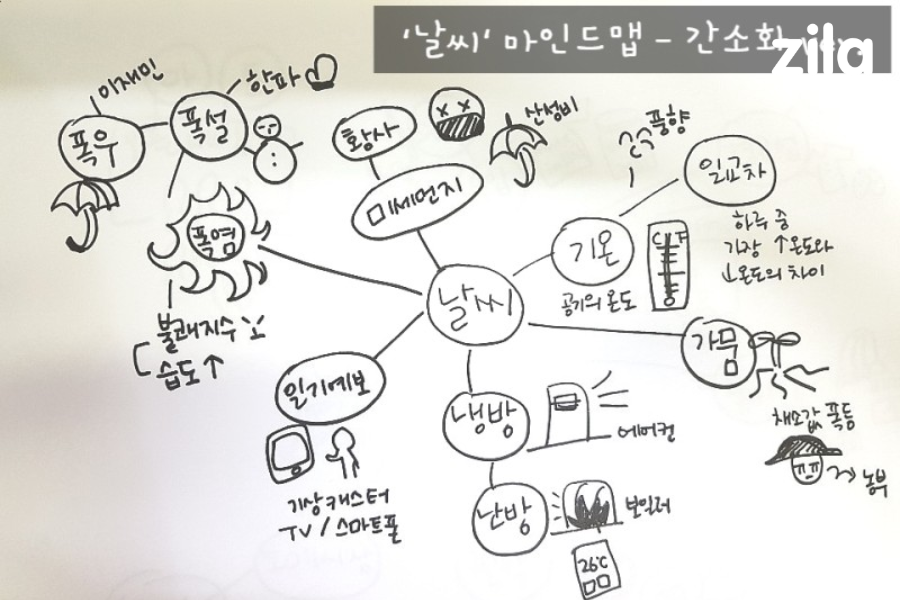 '날씨' 마인드맵 - 간소화
zila
이재민
한파
폭우
폭설
황사
산성비
풍향
미세먼지
일교차
폭염
기온
C F
하루 중
가장 ↑온도와
↓온도의 차이
공기의 온도
날씨
불쾌지수
습도↑
가뭄
일기예보
채소값 폭등
냉방
에어컨
농부
기상캐스터
TV / 스마트폰
난방
보일러
26℃